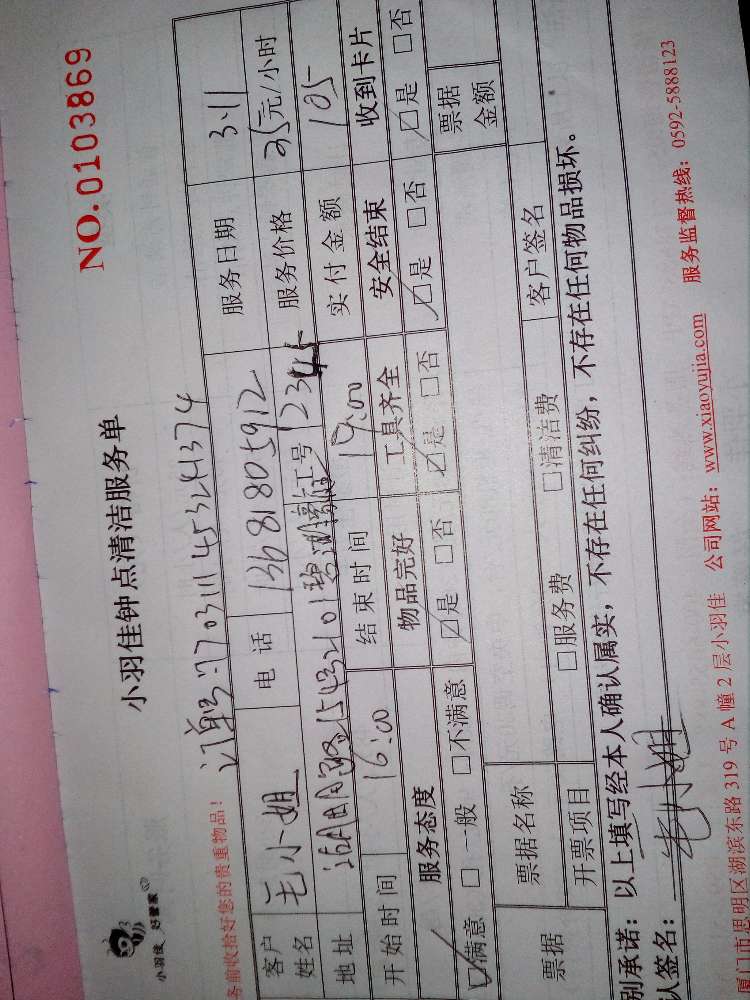 NO.0103869
小羽佳钟点清洁服务单
小羽佳 好管家
务前收拾好您的贵重物品!
订单号:1703111453241374
客户姓名 毛小姐 电话 13681805912 服务日期 3.11
服务价格 35元/小时
地址 工号 12345 实付金额 105
开始时间 16:00 结束时间 19:00
服务态度 物品完好 工具齐全 安全结束 收到卡片
☑满意 □一般 □不满意 ☑是 □否 ☑是 □否 ☑是 □否 ☑是 □否
票据 票据名称 票据金额
开票项目 □服务费 □清洁费 客户签名
别承诺:以上填写经本人确认属实,不存在任何纠纷,不存在任何物品损坏。
人签名:毛小姐
厦门市思明区湖滨东路 319 号 A 幢 2 层小羽佳 公司网站:www.xiaoyujia.com 服务监督热线:0592-5888123